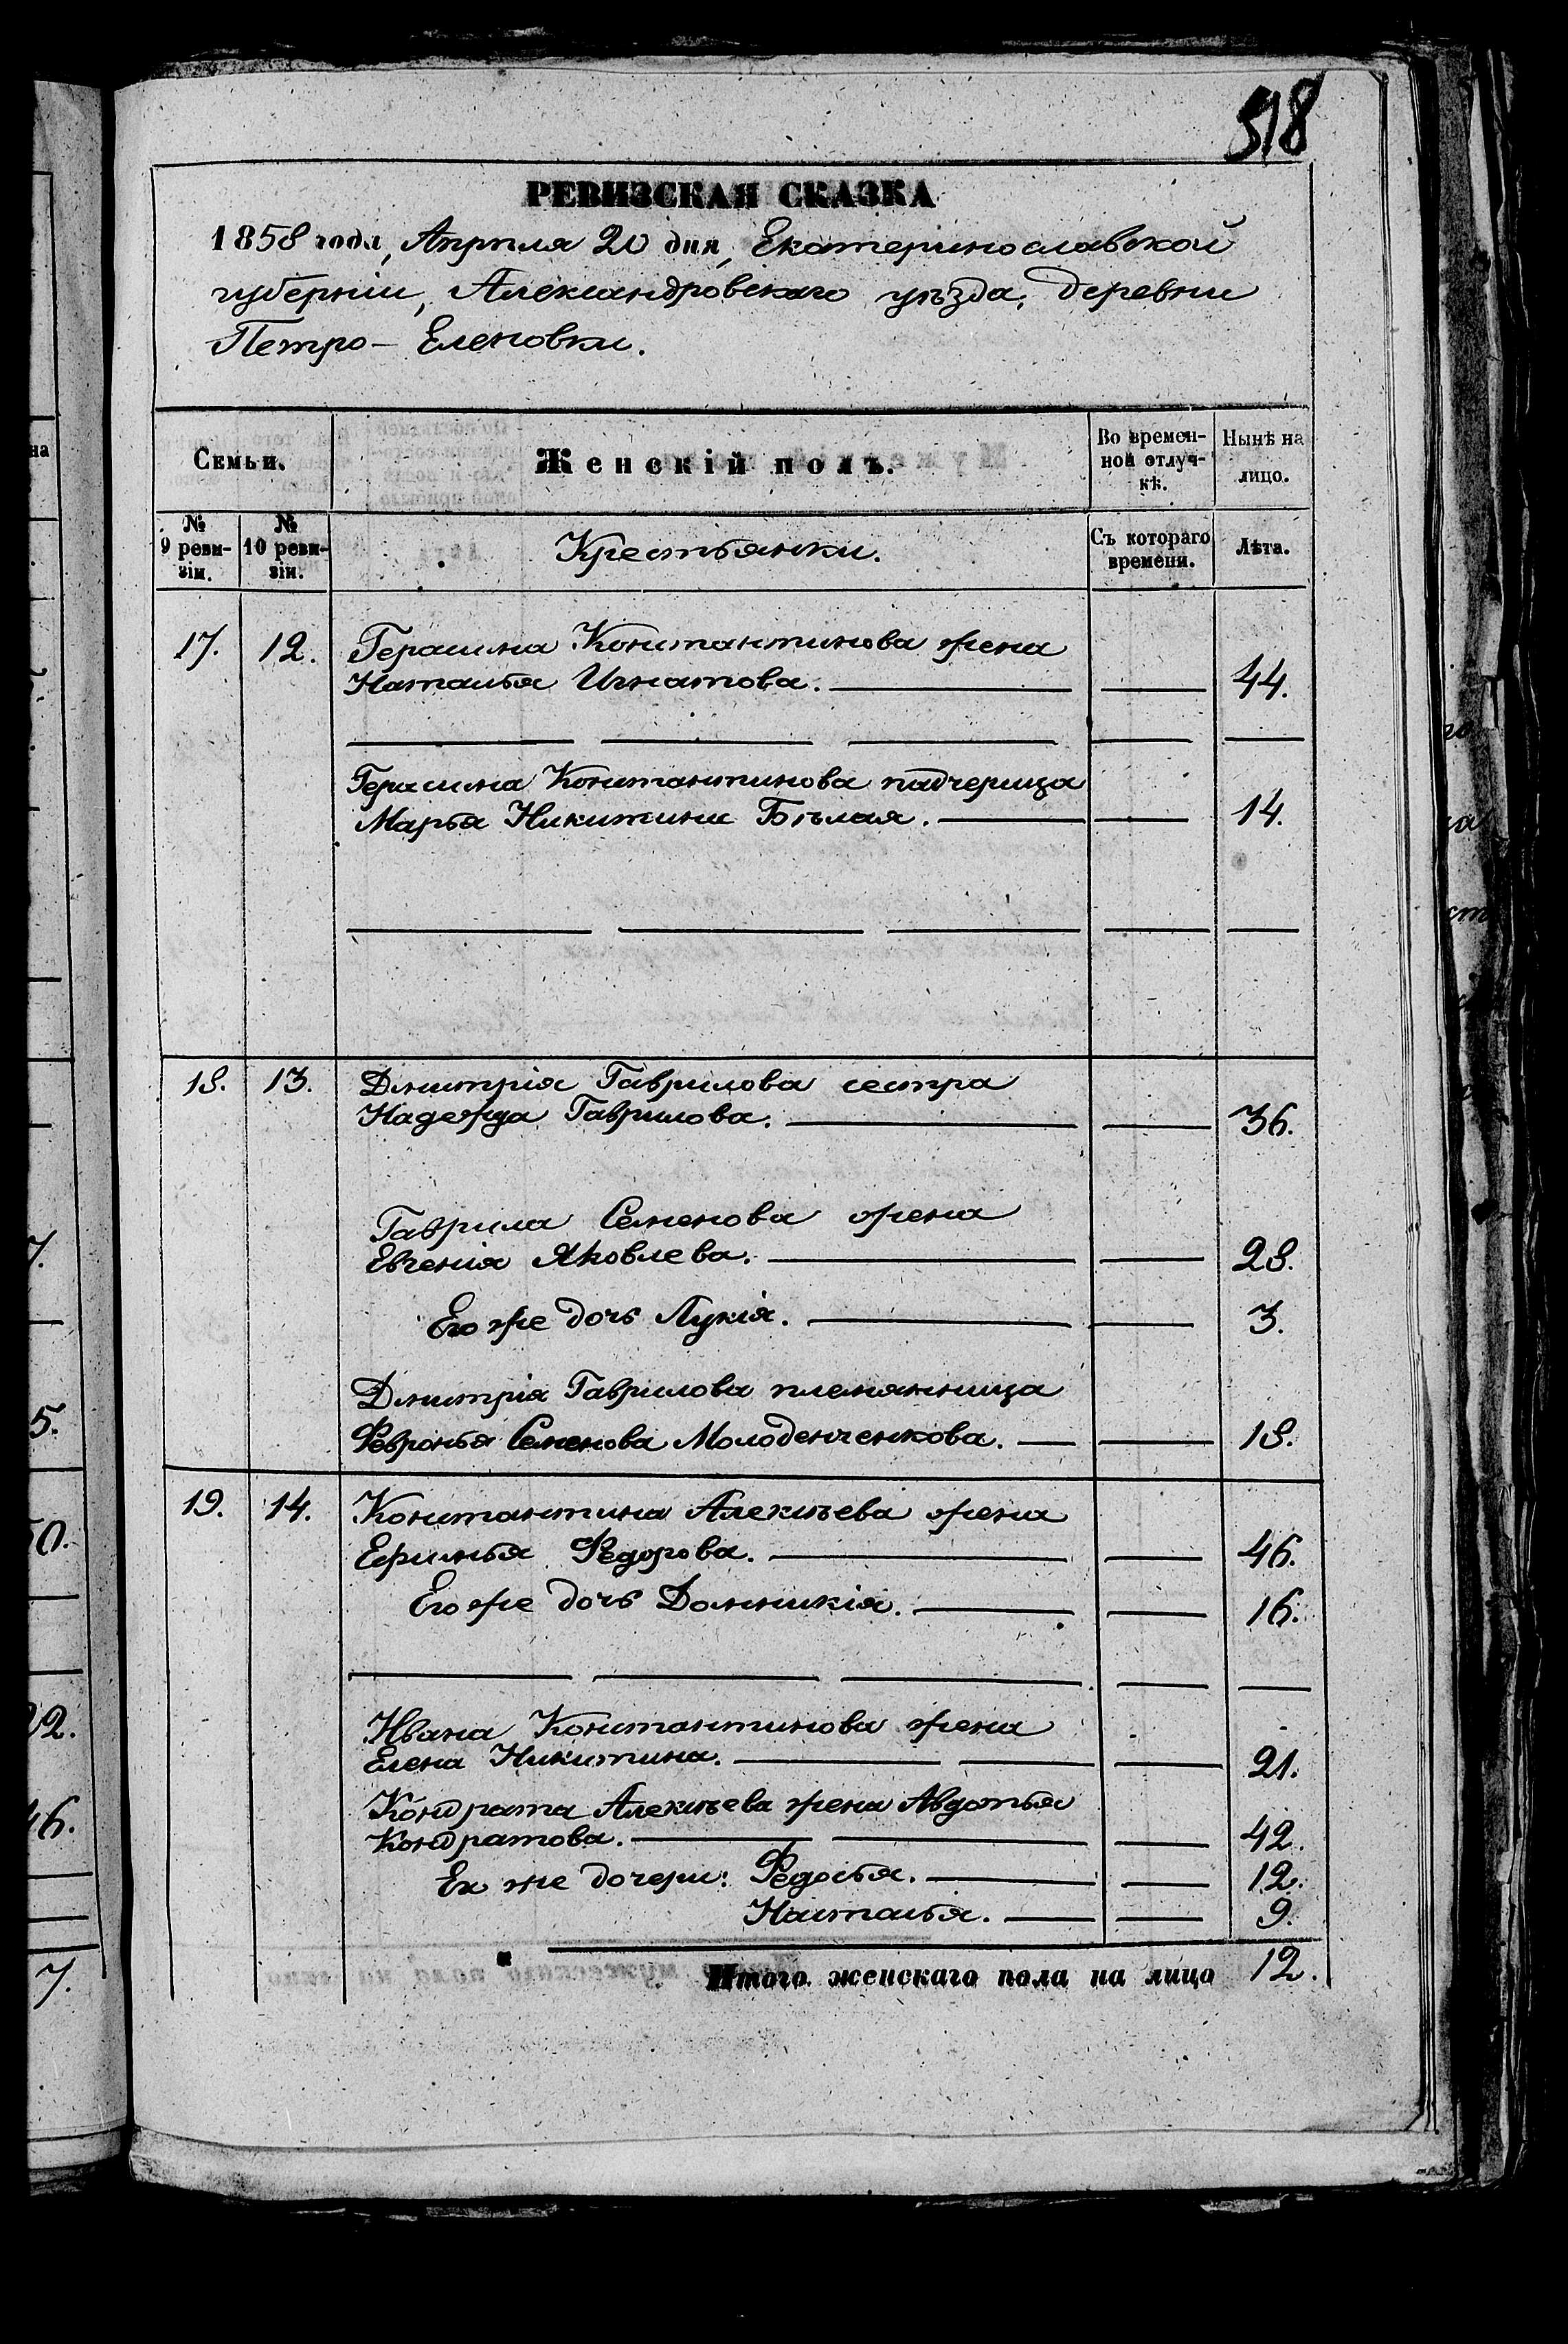 518
РЕВИЗСКАЯ СКАЗКА
1858 года, Апрѣля 20 дня, Екатеринославской
губерніи, Александровскаго уѣзда, деревни
Петро-Еленовки.
Семьи.
Женскій полъ.
Во времен-
ной отлуч-
кѣ.
Нынѣ на
лицо.
№
9 реви-
зіи.
№
10 реви-
зіи.
Крестьянки.
Съ котораго
времени.
Лѣта.
17. 12. Герасима Константинова жена
Наталья Игнатова. 44.
Герасима Константинова падчерица
Марья Никитина Бѣлая. 14.
18. 13. Дмитрія Гаврилова сестра
Надежда Гаврилова. 36.
Гаврила Семенова жена
Евгенія Яковлева. 28.
Его же дочь Лукія. 3.
Дмитрія Гаврилова племянница
Февронья Семенова Молоденченкова. 18.
19. 14. Константина Алексѣева жена
Ефимья Федорова. 46.
Его же дочь Домникія. 16.
Ивана Константинова жена
Елена Никитина. 21.
Кондрата Алексѣева жена Авдотья
Кондратова. 42.
Ея же дочери: Федосья. 12.
Наталья. 9.
Итого женскаго пола на лицо 12.